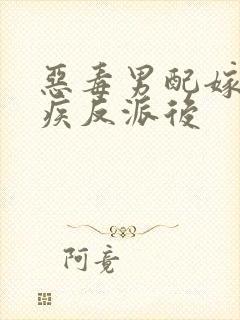 惡毒男配嫁
疾反派後
阿竟